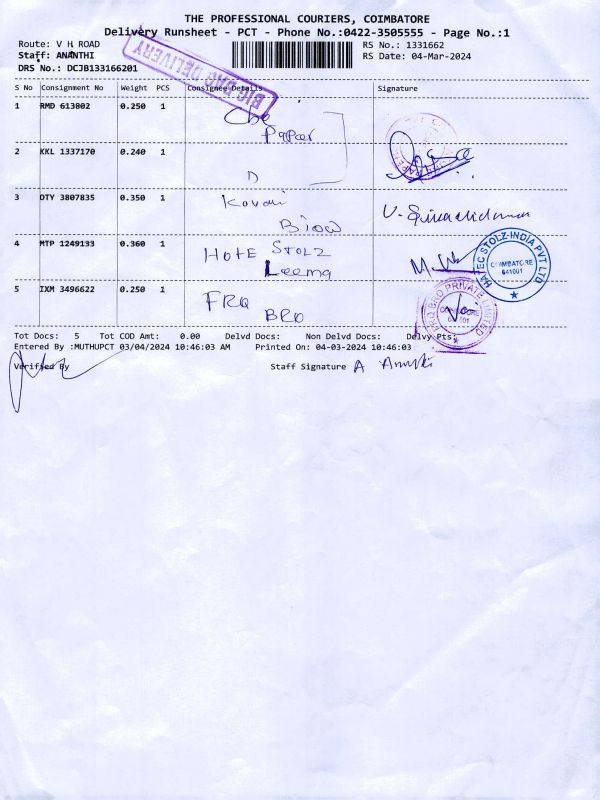 THE PROFESSIONAL COURIERS, COIMBATORE
Delivery Runsheet - PCT - Phone No.:0422-3505555 - Page No.:1
Route: V H ROAD
RS No.: 1331662
Staff: ANANTHI
RS Date: 04-Mar-2024
DRS No.: DCJB133166201
BIG BAG DELIVERY
S No Consignment No Weight PCS Consignee Details Signature
1 RMD 613802 0.250 1 Che
Paper
2 KKL 1337170 0.240 1
D
3 OTY 3807835 0.350 1 Kovai
Biow
4 MTP 1249133 0.360 1 HOTE STOLZ
Leema
HATEC STOLZ INDIA PVT LTD
COIMBATORE
641001
5 IXM 3496622 0.250 1 FRO
BRO
FRO BRO PRIVATE LIMITED
Tot Docs: 5 Tot COD Amt: 0.00 Delvd Docs: Non Delvd Docs: Delvy Pts:
Entered By :MUTHUPCT 03/04/2024 10:46:03 AM Printed On: 04-03-2024 10:46:03
Verified By Staff Signature A